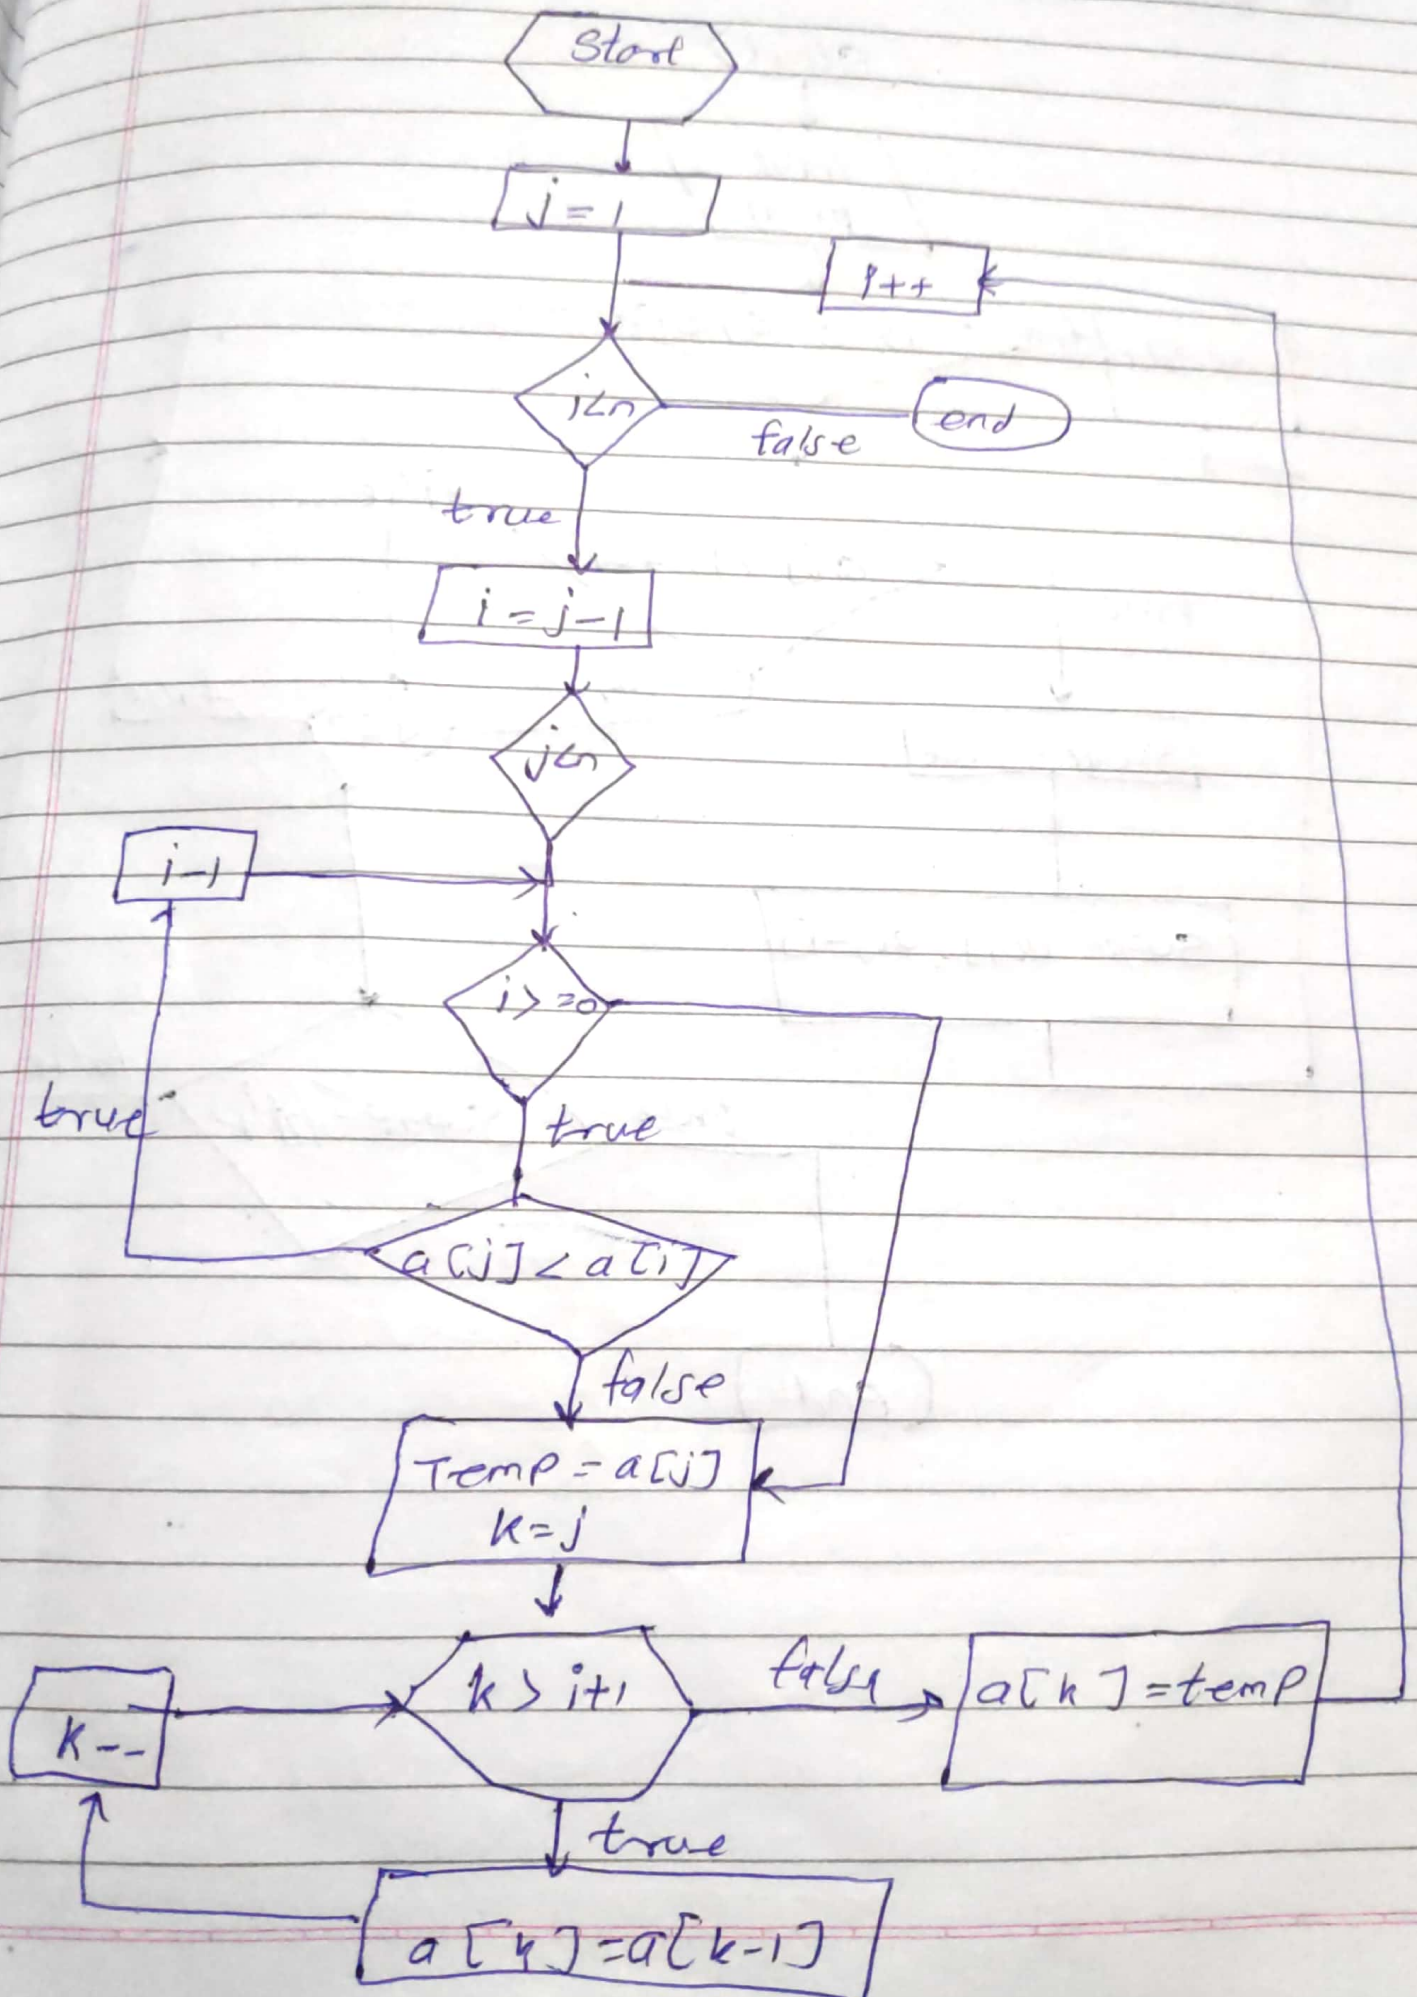 Start
j = 1
i++
j<n
false
end
true
i = j-1
j<n
i-1
i> =0
true
true
a[j] < a[i]
false
Temp = a[j]
k=j
k > i+1
false
a[k] = temp
k--
true
a[k]=a[k-1]